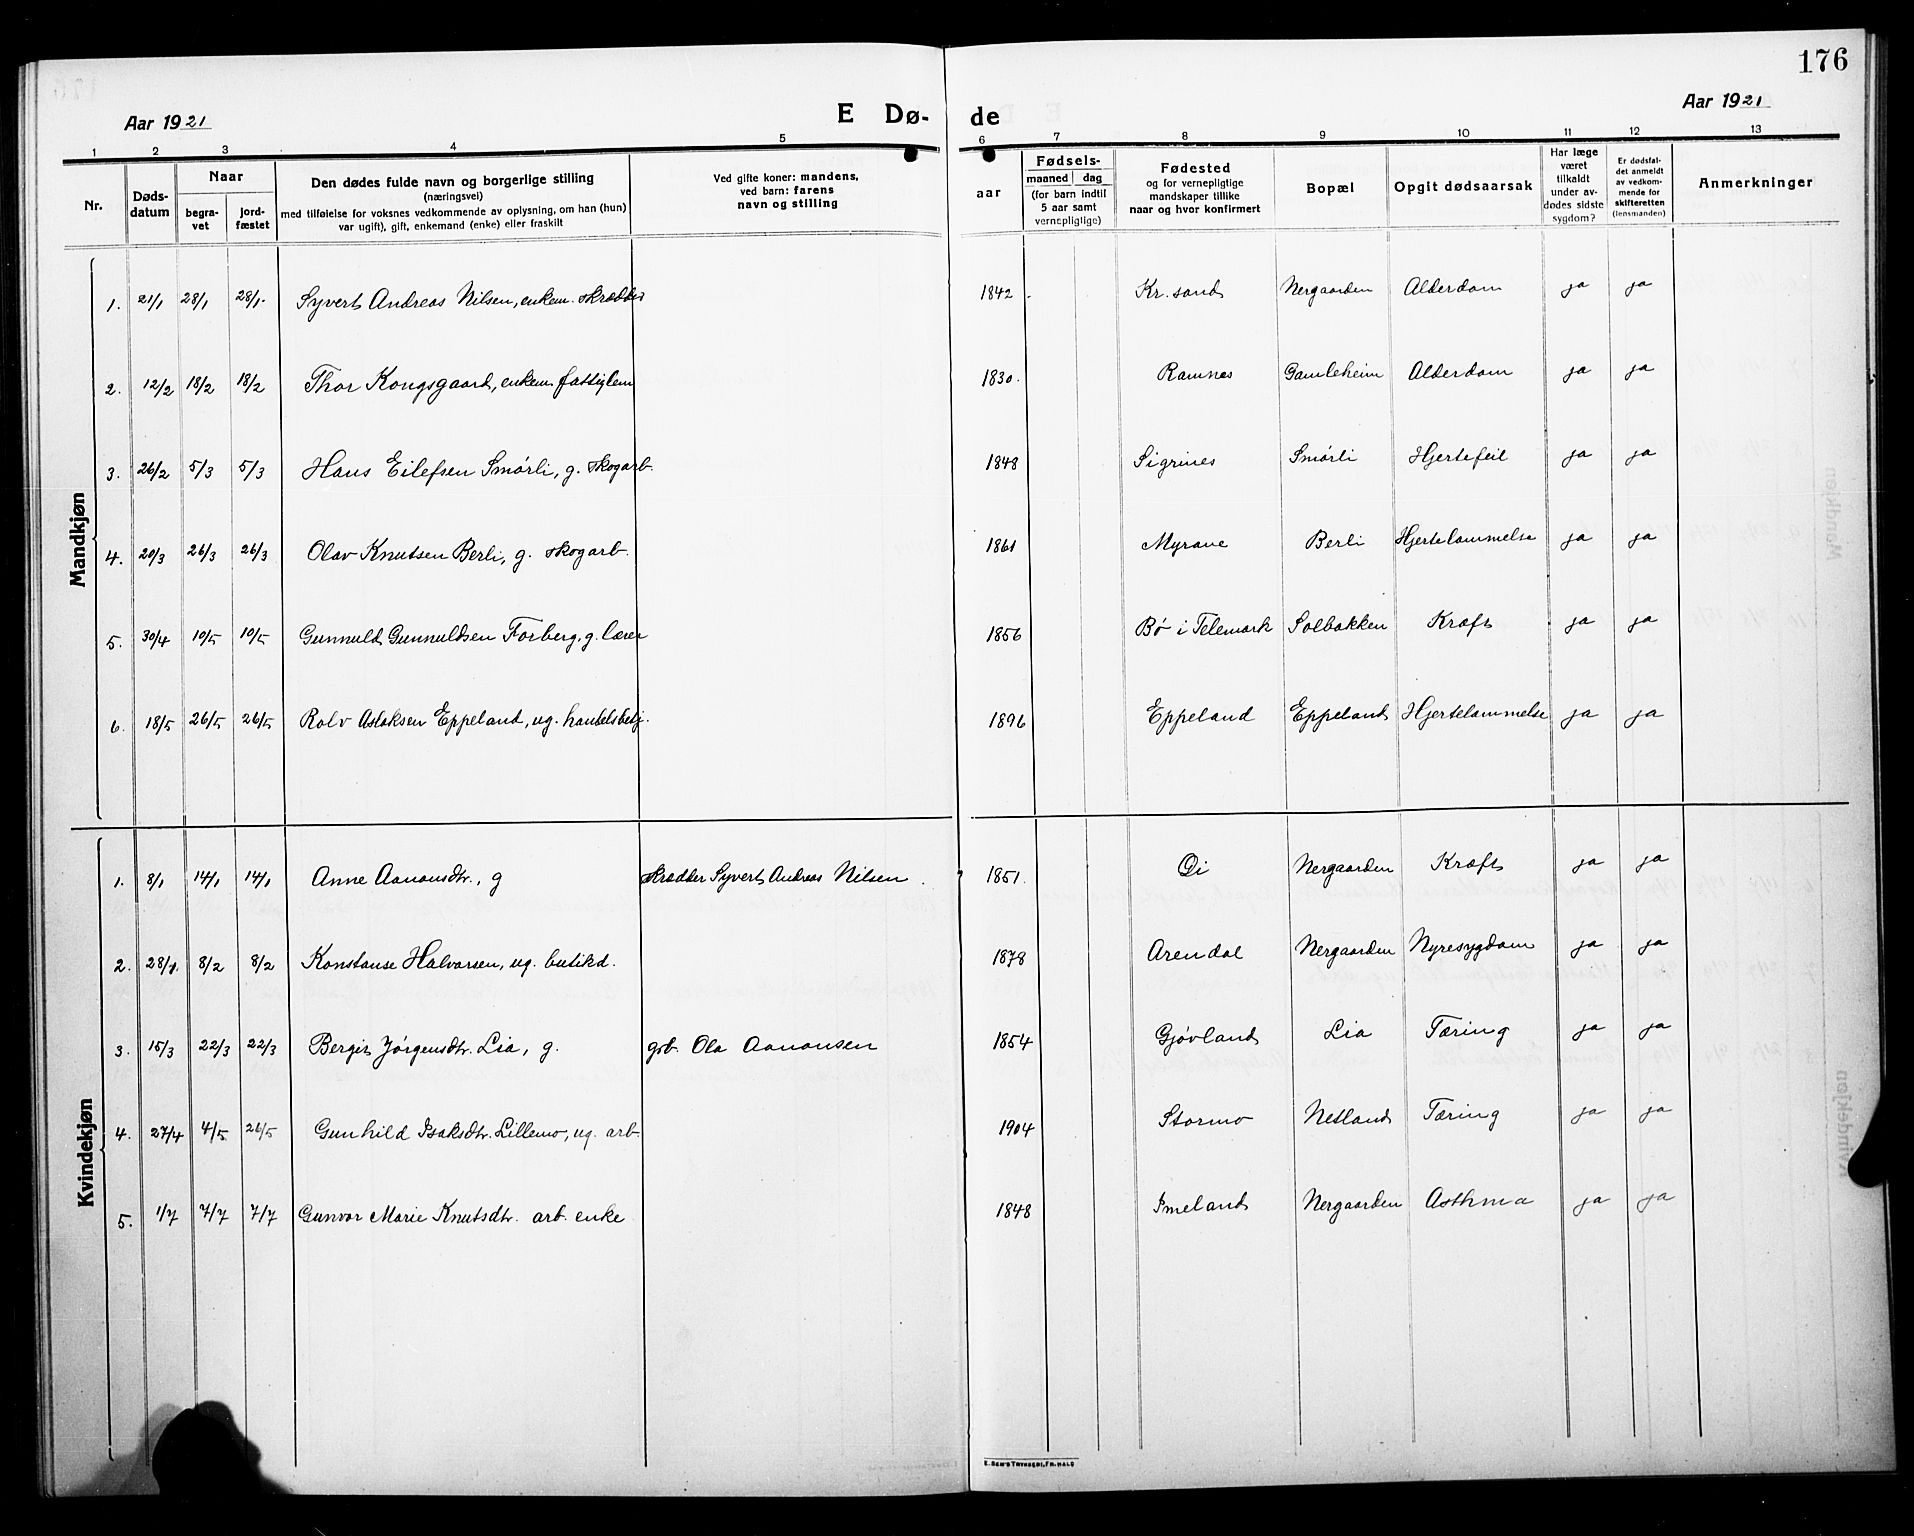 176
Aar 1921
E Dø- de
Aar 1921
1 2 3 4 5 6 7 8 9 10 11 12 13
Nr.
Døds-
datum
Naar
begra-
vet
jord-
fæstet
Den dødes fulde navn og borgerlige stilling
(næringsvei)
med tilføielse for voksnes vedkommende av oplysning, om han (hun)
var ugift), gift, enkemand (enke) eller fraskilt
Ved gifte koner: mandens,
ved barn: farens
navn og stilling
aar
Fødsels-
maaned dag
(for barn indtil
5 aar samt
vernepligtige)
Fødested
og for vernepligtige
mandskaper tillike
naar og hvor konfirmert
Bopæl
Opgit dødsaarsak
Har læge
været
tilkaldt
under av-
dødes sidste
sygdom?
Er dødsfal-
det anmeldt
av vedkom-
mende for
skifteretten
(lensmanden)
Anmerkninger
Mandkjøn
1. 21/1 28/1 28/1. Syvert Andreas Nilsen, enkem. skrædder 1842 Kr.sand Nergaarden Alderdom ja ja
2. 12/2 18/2 18/2 Thor Kongsgaard, enkem. fattiglem 1830. Ramnes Gamleheim Alderdom ja ja
3. 26/2 5/3 5/3 Hans Eilefsen Smørli, g. skogarb. 1848 Sigrines Smørli Hjertefeil ja ja
4. 20/3 26/3 26/3 Olav Knutsen Berli, g. skogarb. 1861 Myrane Berli Hjertelammelse ja ja
5. 30/4 10/5 10/5 Gunnuld Gunnuldsen Forberg, g. lærer 1856 Bø i Telemark Solbakken Kræft ja ja
6. 18/5 26/5 26/5 Rolv Aslaksen Eppeland, ug. handelsbetj. 1896 Eppeland Eppeland Hjertelammelse ja ja
Kvindekjøn
1. 8/1 14/1 14/1 Anne Aanonsdtr., g skrædder Syvert Andreas Nilsen. 1851. Øi Nergaarden Kræft ja ja
2. 28/1. 8/2 8/2 Konstanse Halvorsen, ug. butikd. 1878 Arendal Nergaarden Nyresygdom ja ja
3. 15/3 22/3 22/3 Bergit Jørgensdtr. Lia, g. grb. Ola Aanonsen 1854 Gjøvland Lia Tæring ja ja
4. 27/4 4/5 26/5 Gunhild Isaksdtr. Lillemo, ug. arb. 1904 Stormo Netland Tæring ja ja
5. 1/7 7/7 7/7 Gunvor Marie Knutsdtr. arb. enke 1848 Imeland Nergaarden Asthma ja ja